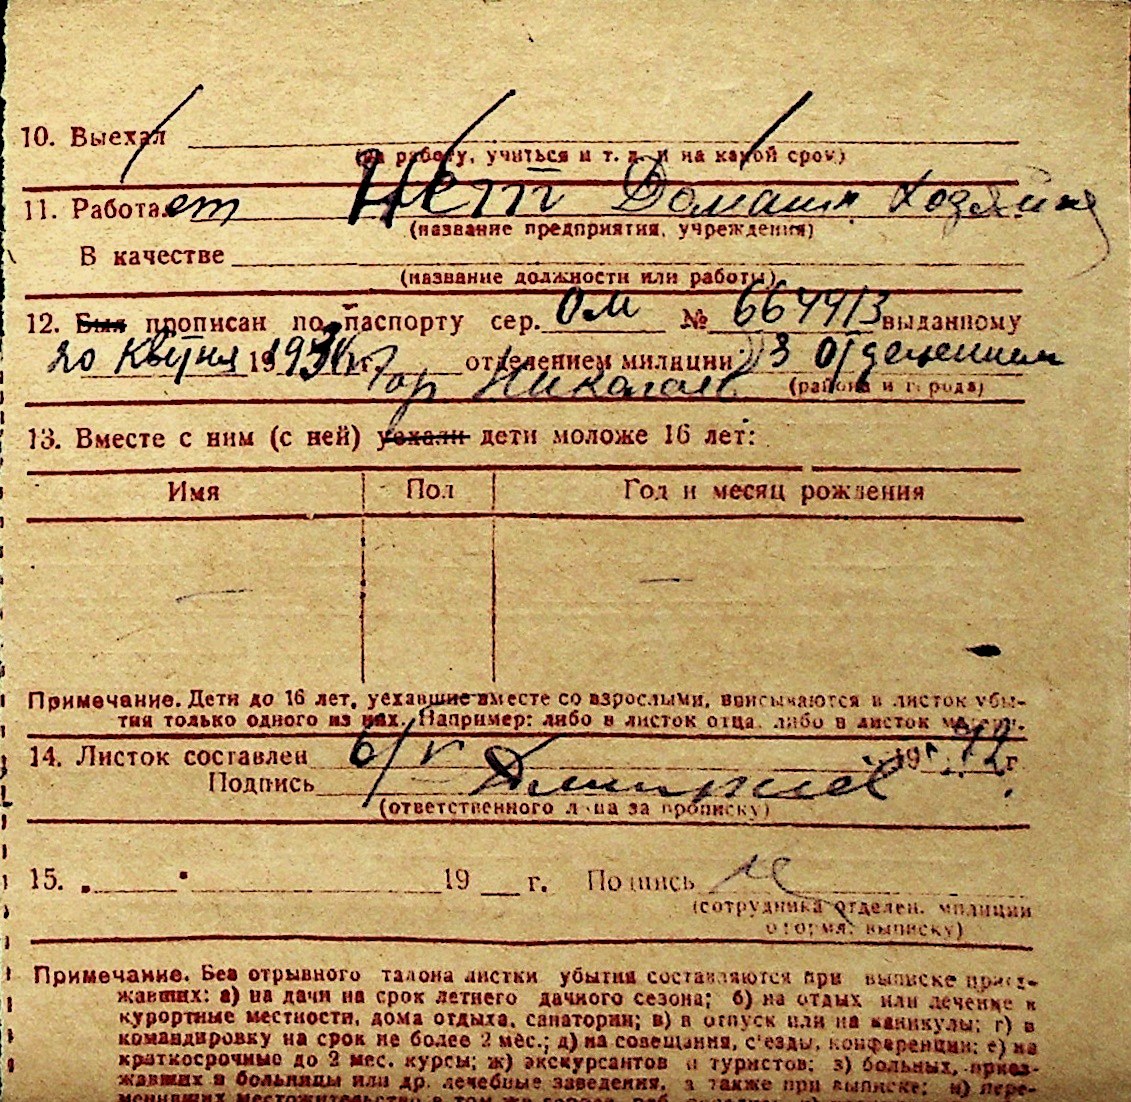 10. Выехал
(на работу, учиться и т. д. и на какой срок)
11. Работает Нет Домашн. хозяйка
(название предприятия, учреждения)
В качестве
(название должности или работы)
12. Был прописан по паспорту сер. ОМ № 664913 выданному
20 Квітня 19 г. отделением милиции 3 Отделением
Гор Николаев (района и города)
13. Вместе с ним (с ней) уехали дети моложе 16 лет:
Имя Пол Год и месяц рождения
— —
Примечание. Дети до 16 лет, уехавшие вместе со взрослыми, вписываются в листок убы-
тия только одного из них. Например: либо в листок отца, либо в листок матери.
14. Листок составлен 6/V 1942 г.
Подпись
(ответственного лица за прописку)
15. „ “ 19 г. Подпись
(сотрудника отделен. милиции
оформл. выписку)
Примечание. Без отрывного талона листки убытия составляются при выписке приез-
жавших: а) на дачи на срок летнего дачного сезона; б) на отдых или лечение в
курортные местности, дома отдыха, санатории; в) в отпуск или на каникулы; г) в
командировку на срок не более 2 мес.; д) на совещания, с'езды, конференции; е) на
краткосрочные до 2 мес. курсы; ж) экскурсантов и туристов; з) больных, приез-
жавших в больницы или др. лечебные заведения, а также при выписке; и) пере-
менивших местожительство в том же городе,